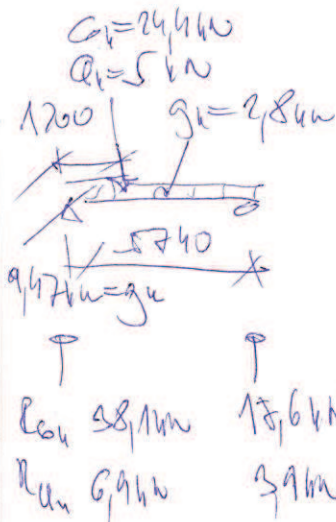 Gk=24,4kN
Qk=5 kN
1200
gk=2,8kN
5740
9,47kN=gk
RGk 38,1kN 17,6kN
RQk 6,9kN 3,9kN